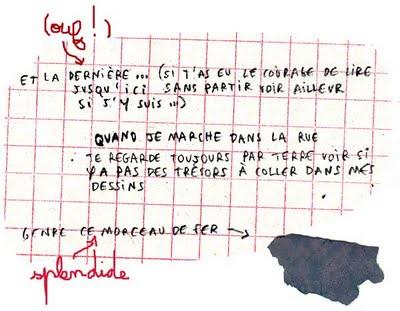 (ouf!)
ET LA DERNIÈRE... (SI T'AS EU LE COURAGE DE LIRE
JUSQU'ICI SANS PARTIR VOIR AILLEUR
SI J'Y SUIS...)
QUAND JE MARCHE DANS LA RUE
JE REGARDE TOUJOURS PAR TERRE VOIR SI
Y'A PAS DES TRÉSORS À COLLER DANS MES
DESSINS
GENRE CE MORCEAU DE FER →
splendide